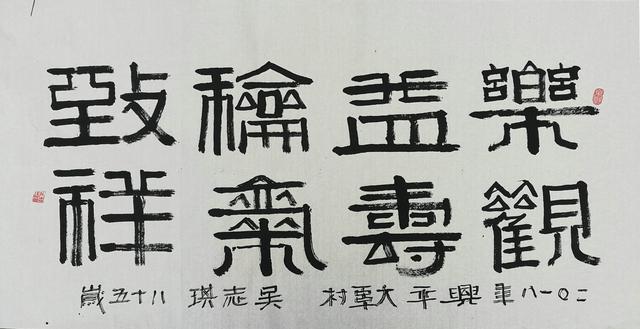 樂觀
益壽
龢氣
致祥
二〇一八年 興平大村 吴志琪 八十五歲